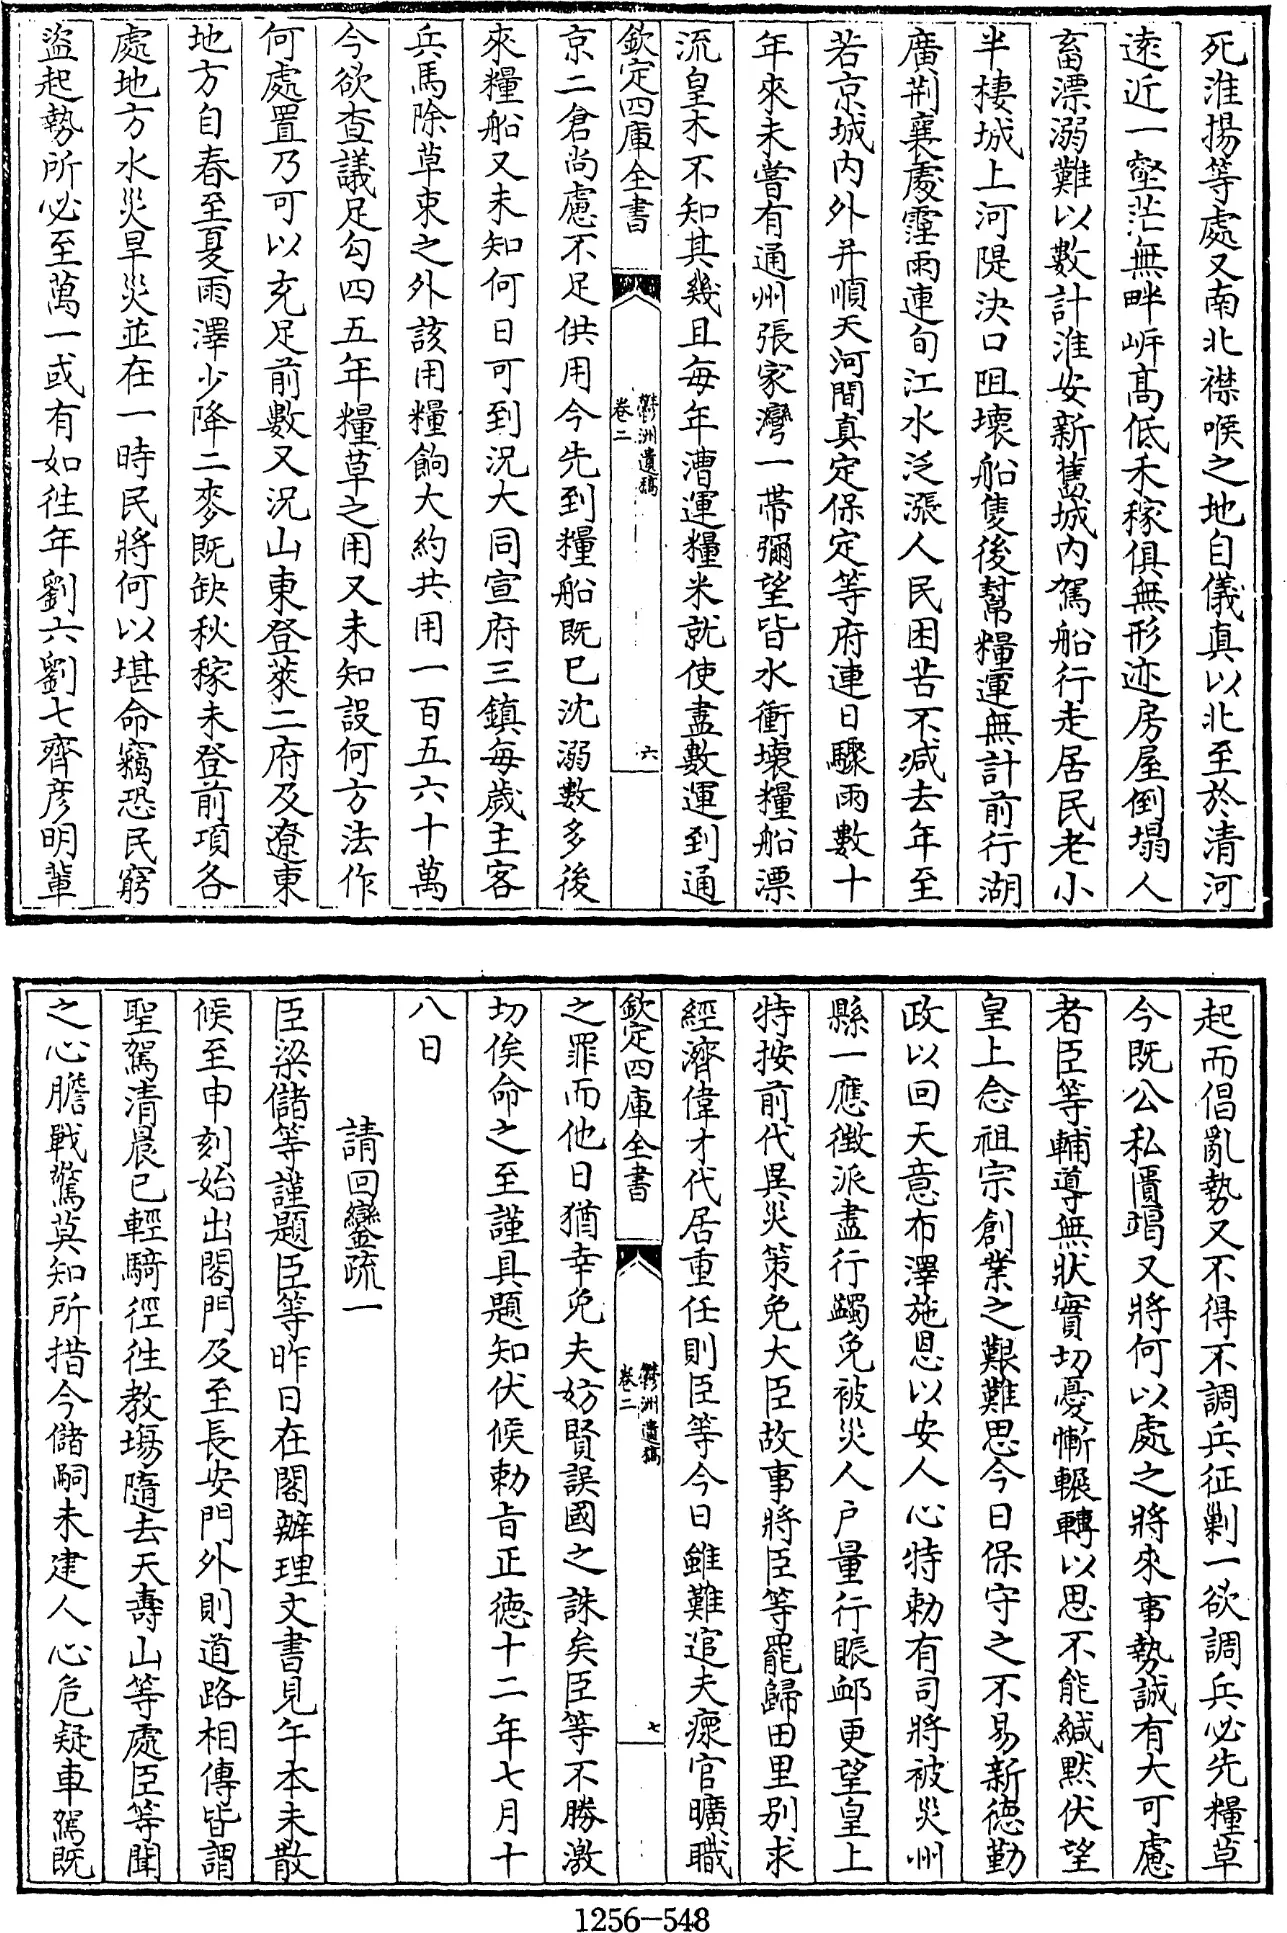 死淮揚等處又南北襟喉之地自儀真以北至於清河
遠近一壑茫無畔岸髙低禾稼俱無形迹房屋倒塌人
畜漂溺難以數計淮安新舊城内駕船行走居民老小
半棲城上河隄決口阻壞船隻後幫糧運無計前行湖
廣荆襄處霪雨連旬江水泛漲人民困苦不減去年至
若京城内外并順天河間真定保定等府連日驟雨數十
年來未嘗有通州張家灣一帶彌望皆水衝壞糧船漂
流皇木不知其幾且每年漕運糧米就使盡數運到通
欽定四庫全書
鬱洲遺稿
卷二
六
京二倉尚慮不足供用今先到糧船既已沈溺數多後
來糧船又未知何日可到況大同宣府三鎮每歲主客
兵馬除草束之外該用糧餉大約共用一百五六十萬
今欲查議足勾四五年糧草之用又未知設何方法作
何處置乃可以充足前數又況山東登萊二府及遼東
地方自春至夏雨澤少降二麥既缺秋稼未登前項各
處地方水災旱災並在一時民將何以堪命竊恐民窮
盜起勢所必至萬一或有如徃年劉六劉七齊彦明輩
起而倡亂勢又不得不調兵征剿一欲調兵必先糧草
今既公私匱竭又將何以處之將來事勢誠有大可慮
者臣等輔導無狀實切憂慚輾轉以思不能緘默伏望
皇上念祖宗創業之艱難思今日保守之不易新徳勤
政以回天意布澤施恩以安人心特勅有司將被災州
縣一應徴派盡行蠲免被災人户量行賑䘏更望皇上
特按前代異災策免大臣故事將臣等罷歸田里别求
經濟偉才代居重任則臣等今日雖難逭夫瘝官曠職
欽定四庫全書
鬱洲遺稿
卷二
七
之罪而他日猶幸免夫妨賢誤國之誅矣臣等不勝激
切俟命之至謹具題知伏候勅旨正徳十二年七月十
八日
請回鑾疏一
臣梁儲等謹題臣等昨日在閣辦理文書見午本未散
候至申刻始出閣門及至長安門外則道路相傳皆謂
聖駕清晨已輕騎徑徃教塲隨去天壽山等處臣等聞
之心膽戰驚莫知所措今儲嗣未建人心危疑車駕既
1256—548